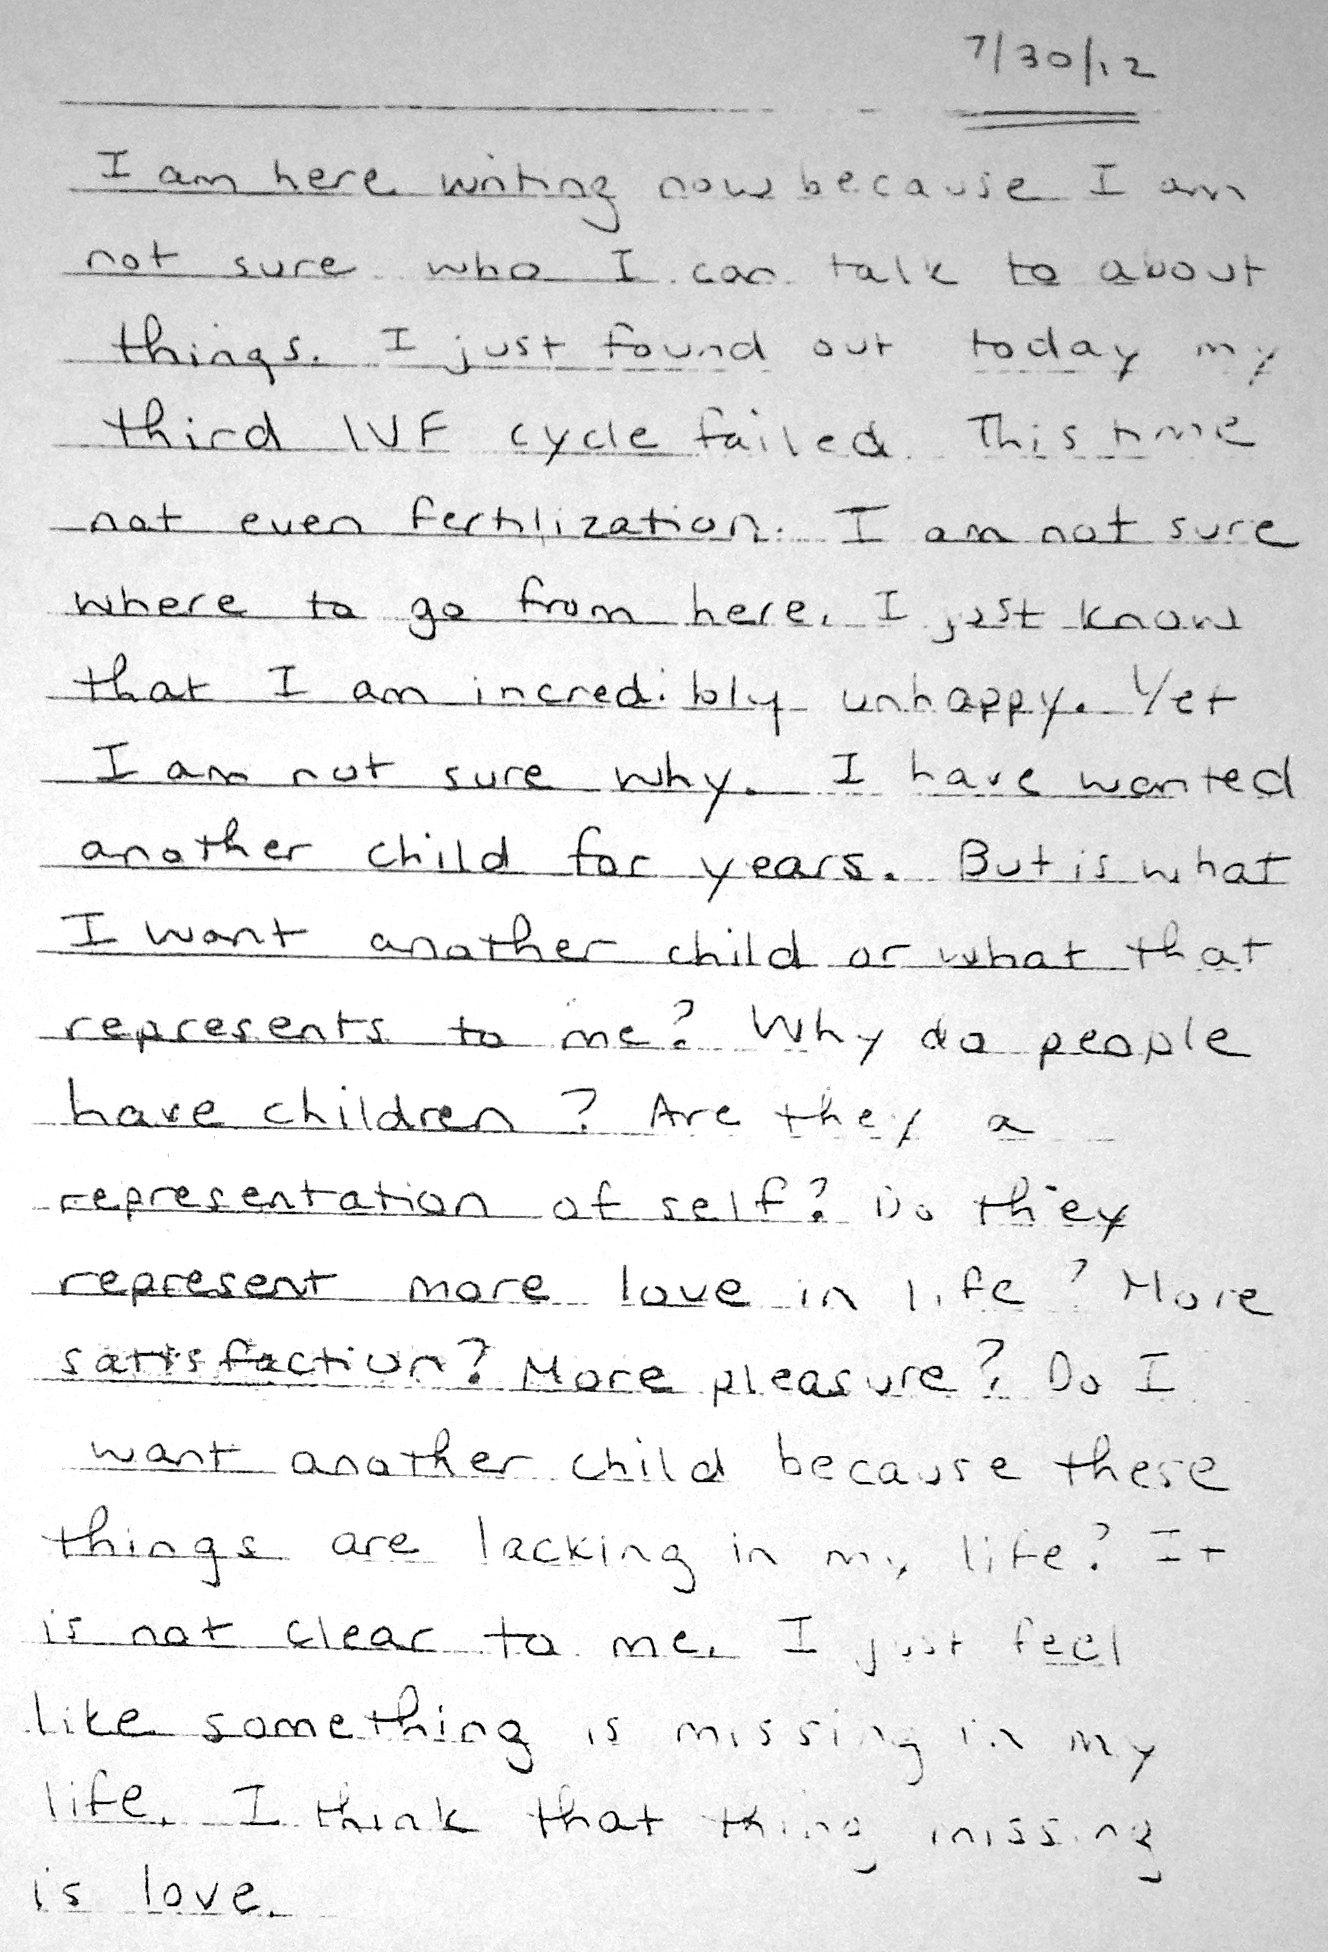 7/30/12
I am here writing now because I am
not sure who I can talk to about
things. I just found out today my
third IVF cycle failed. This time
not even fertilization. I am not sure
where to go from here. I just know
that I am incredibly unhappy. Yet
I am not sure why. I have wanted
another child for years. But is what
I want another child or what that
represents to me? Why do people
have children? Are they a
representation of self? Do they
represent more love in life? More
satisfaction? More pleasure? Do I
want another child because these
things are lacking in my life? It
is not clear to me. I just feel
like something is missing in my
life. I think that thing missing
is love.